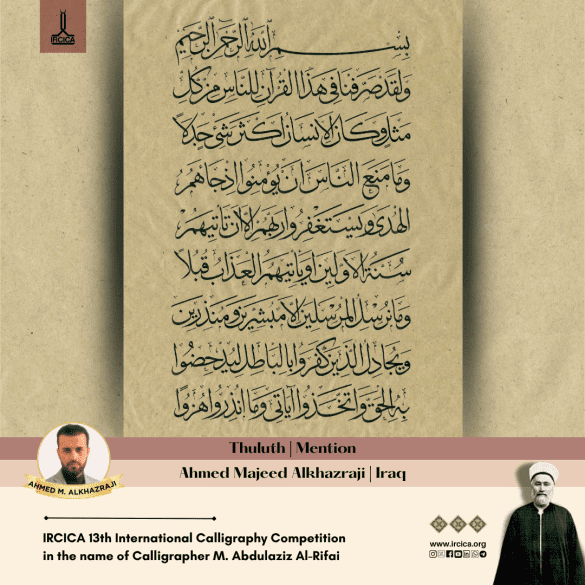 IRCICA
بسم الله الرحمن الرحيم
ولقد صرفنا في هذا القرآن للناس من كل
مثل وكان الإنسان أكثر شيء جدلا
وما منع الناس أن يؤمنوا إذ جاءهم
الهدى ويستغفروا ربهم إلا أن تأتيهم
سنة الأولين أو يأتيهم العذاب قبلا
وما نرسل المرسلين إلا مبشرين ومنذرين
ويجادل الذين كفروا بالباطل ليدحضوا
به الحق واتخذوا آياتي وما أنذروا هزوا
Thuluth | Mention
Ahmed Majeed Alkhazraji | Iraq
AHMED M. ALKHAZRAJI
IRCICA 13th International Calligraphy Competition
in the name of Calligrapher M. Abdulaziz Al-Rifai
www.ircica.org